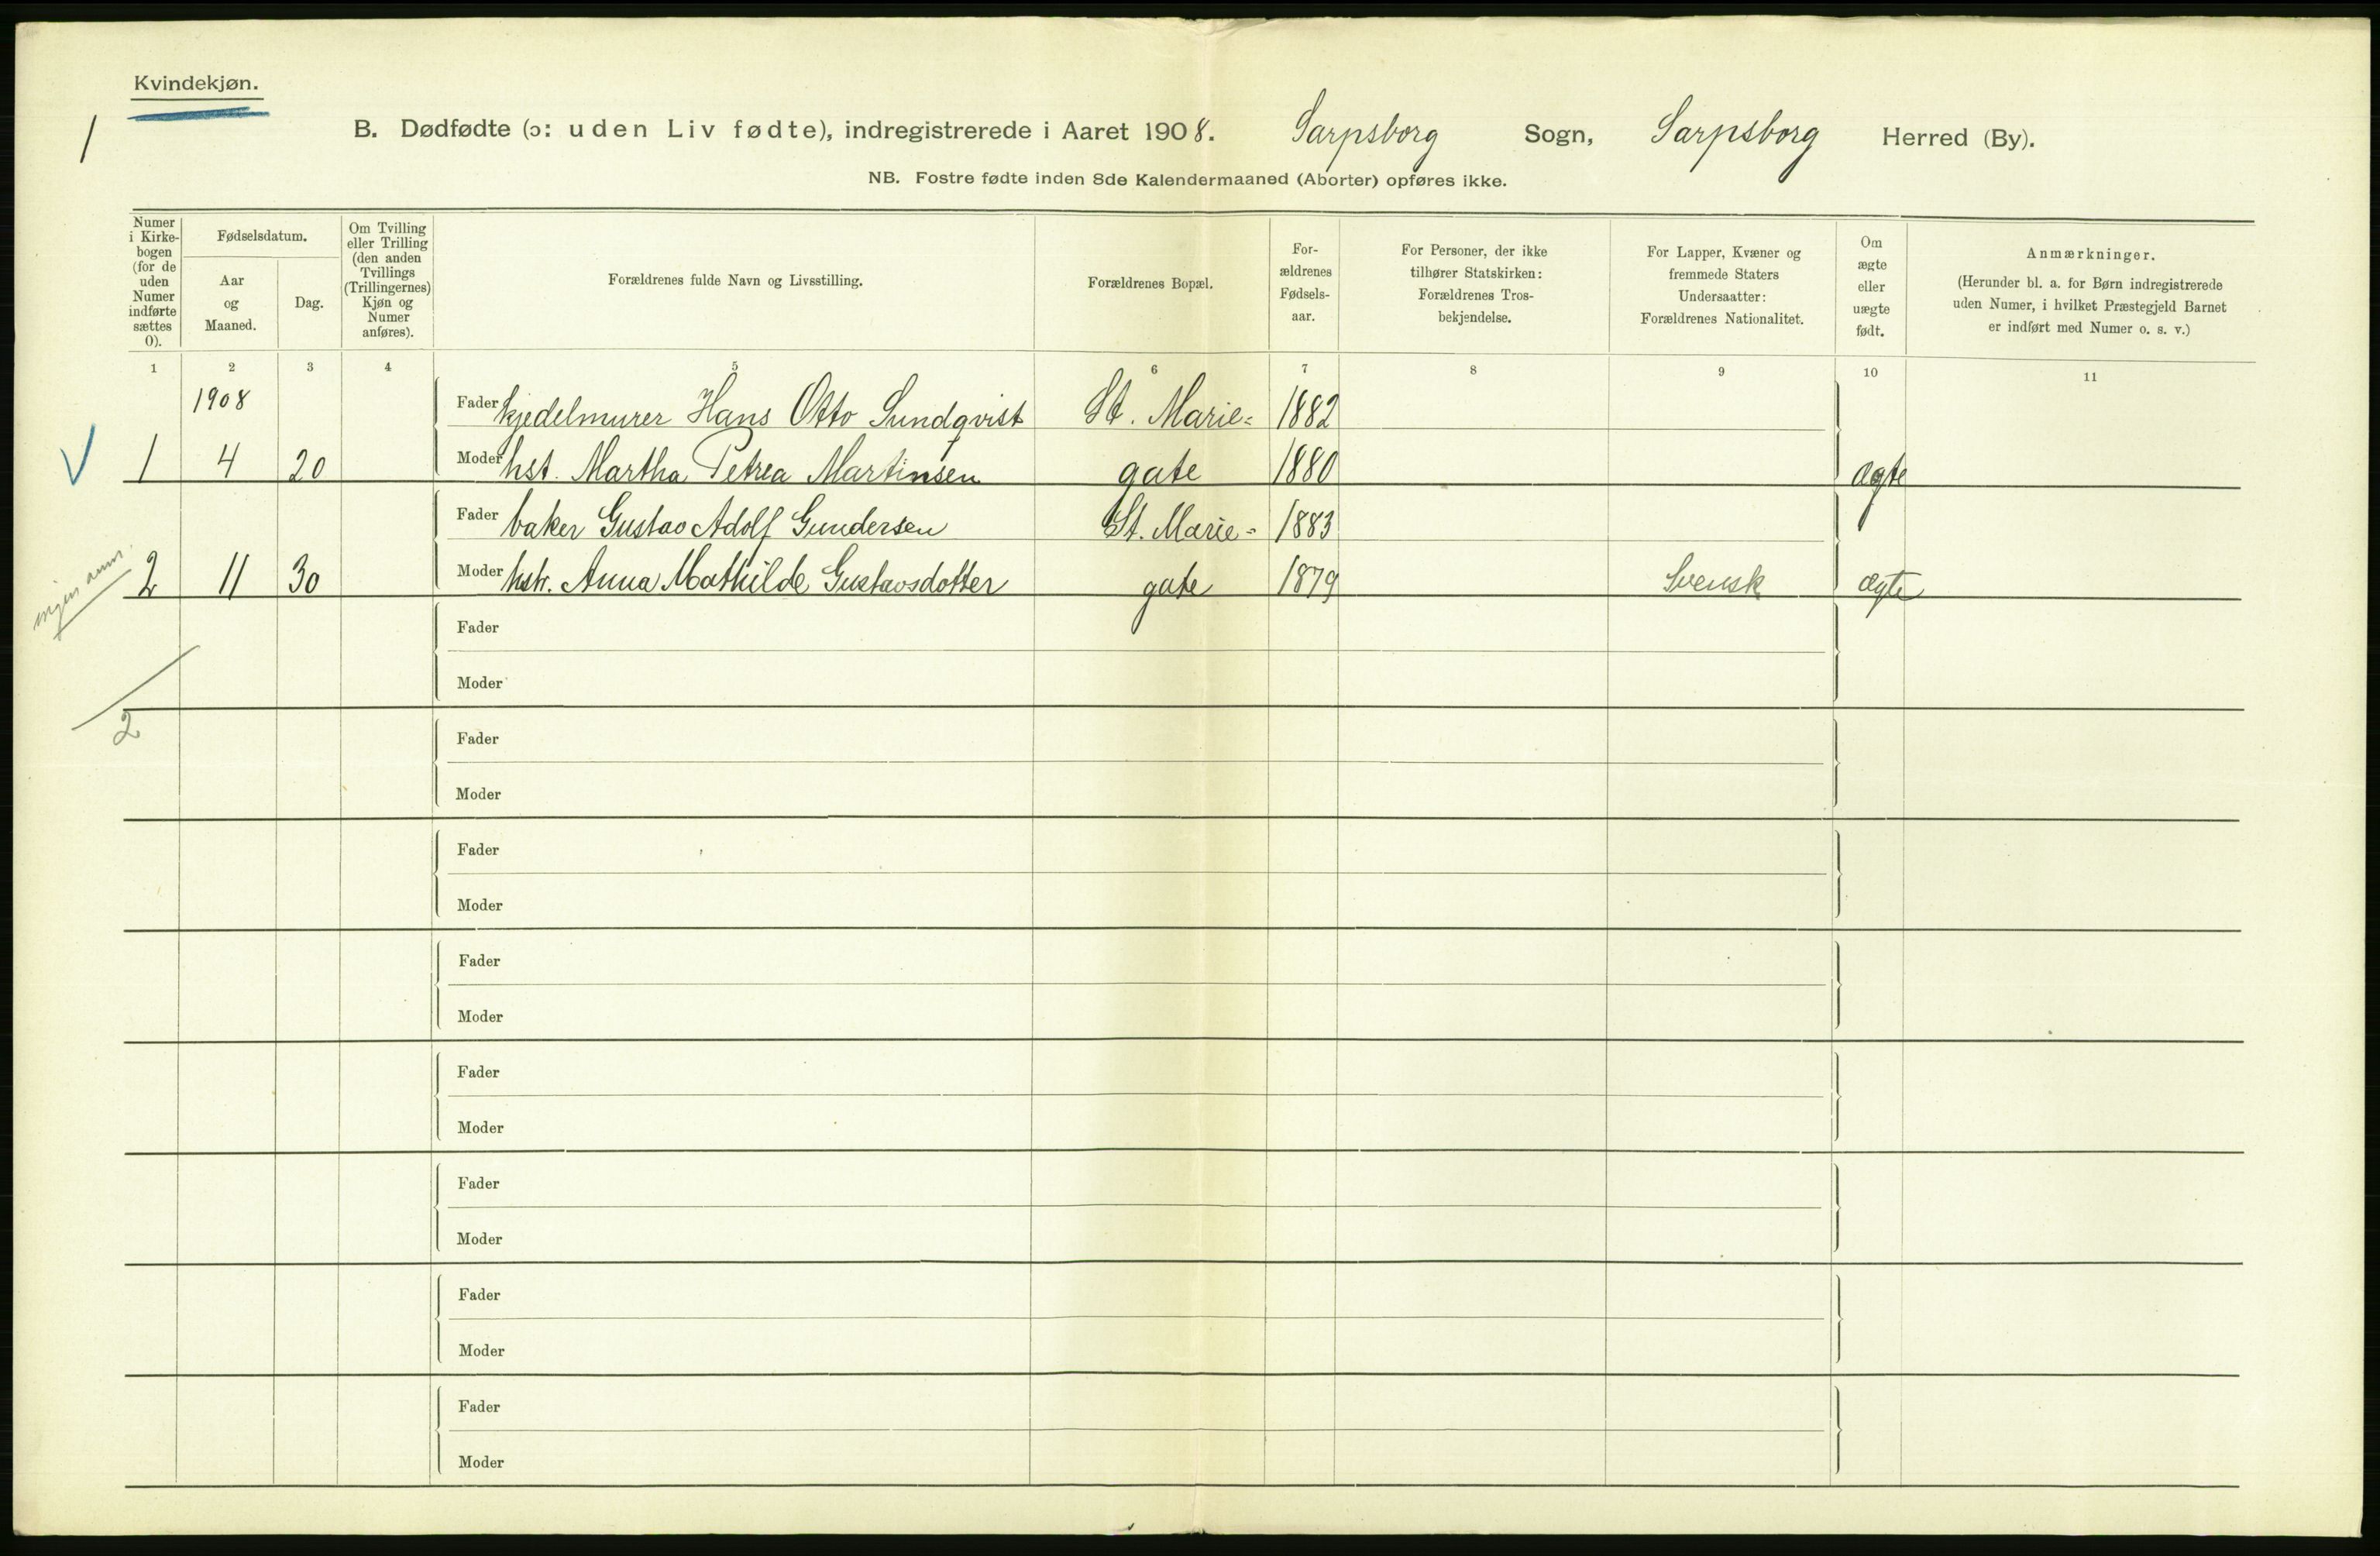 Kvindekjøn.
1
B. Dødfødte (ɔ: uden Liv fødte), indregistrerede i Aaret 1908. Sarpsborg Sogn, Sarpsborg Herred (By).
NB. Fostre fødte inden 8de Kalendermaaned (Aborter) opføres ikke.
Numer i Kirke-bogen (for de uden Numer indførte sættes 0).
Fødselsdatum.
Aar og Maaned.
Dag.
Om Tvilling eller Trilling (den anden Tvillings (Trillingernes) Kjøn og Numer anføres).
Forældrenes fulde Navn og Livsstilling.
Forældrenes Bopæl.
For-ældrenes Fødsels-aar.
For Personer, der ikke tilhører Statskirken: Forældrenes Tros-bekjendelse.
For Lapper, Kvæner og fremmede Staters Undersaatter: Forældrenes Nationalitet.
Om ægte eller uægte født.
Anmærkninger.
(Herunder bl. a. for Børn indregistrerede uden Numer, i hvilket Præstegjeld Barnet er indført med Numer o. s. v.)
1 2 3 4 5 6 7 8 9 10 11
1908 Fader kjedelmurer Hans Otto Sundqvist St. Marie= 1882
1 4 20 Moder hst. Martha Petrea Martinsen gate 1880 ægte
Fader baker Gustav Adolf Gundersen St. Marie= 1883
2 11 30 Moder hstr. Anna Mathilde Gustavsdotter gate 1879 Svensk ægte
ingen anm.
Fader
Moder
2
Fader
Moder
Fader
Moder
Fader
Moder
Fader
Moder
Fader
Moder
Fader
Moder
Fader
Moder